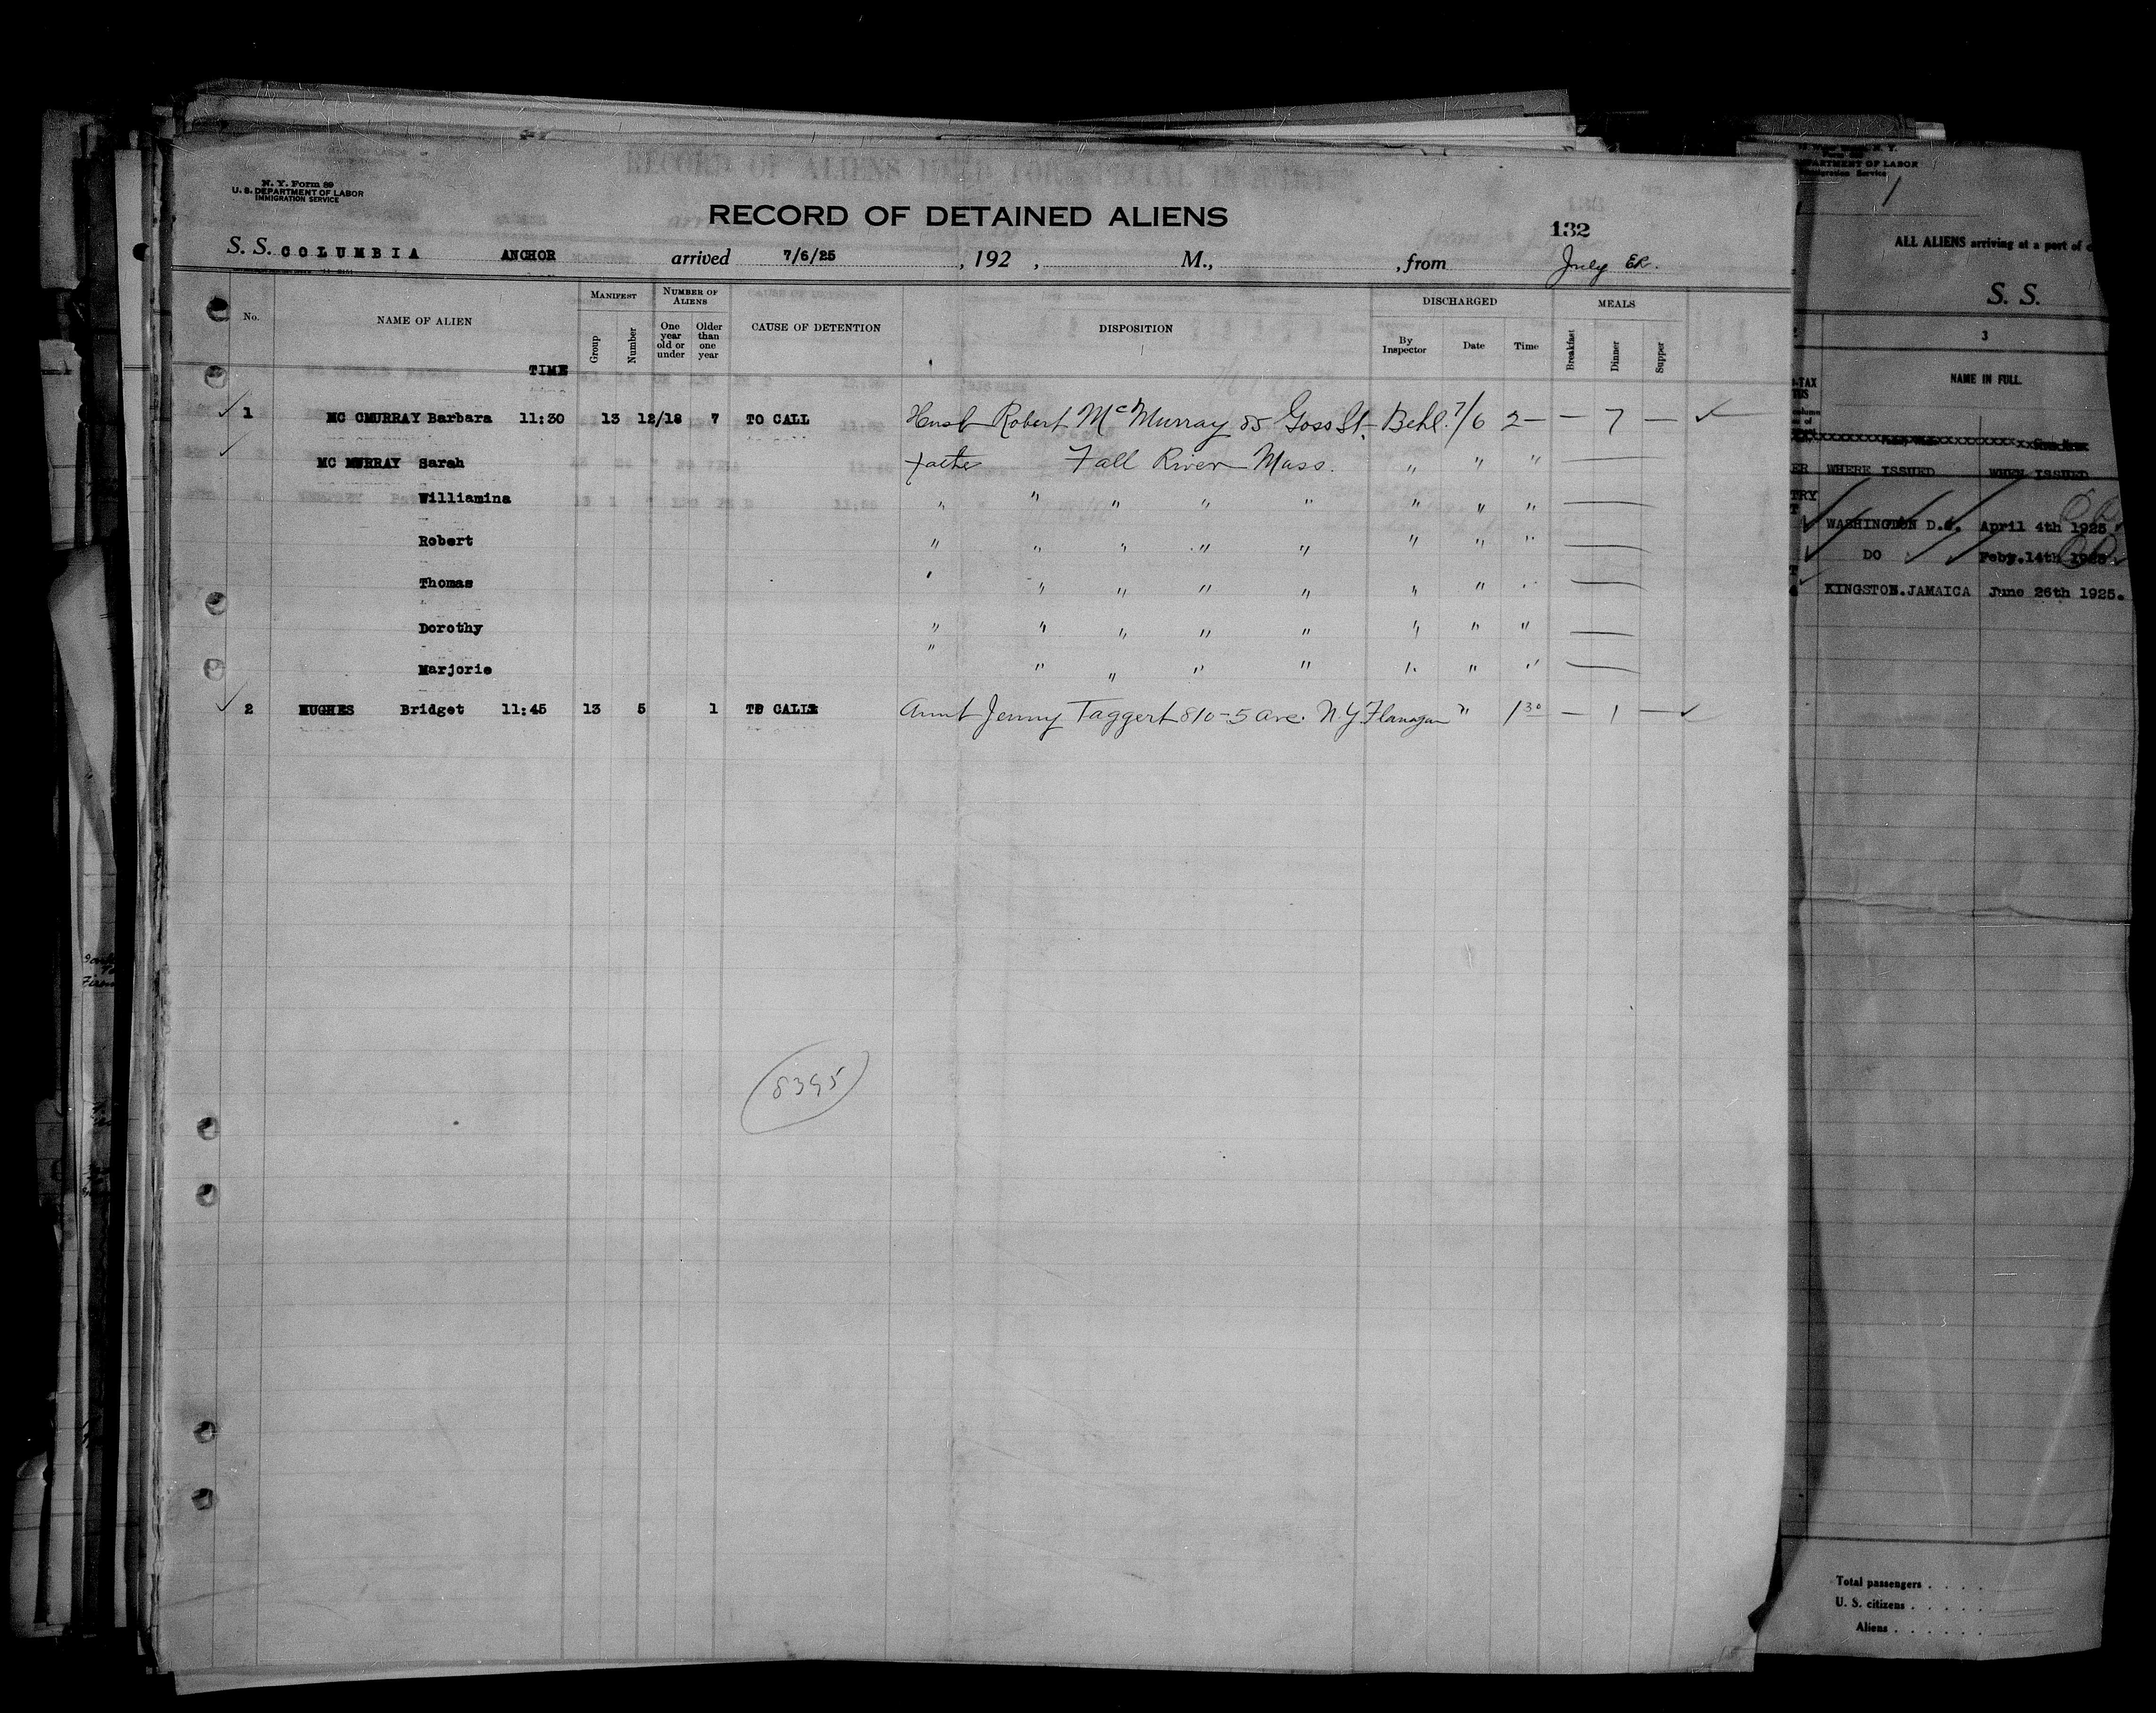 N. Y. Form 89
U. S. DEPARTMENT OF LABOR
IMMIGRATION SERVICE
RECORD OF DETAINED ALIENS
132
S. S. COLUMBIA ANCHOR arrived 7/6/25 , 192 , M., , from July ER.
No. NAME OF ALIEN TIME MANIFEST Group Number NUMBER OF ALIENS One year old or under Older than one year CAUSE OF DETENTION DISPOSITION DISCHARGED By Inspector Date Time MEALS Breakfast Dinner Supper
1 MC CMURRAY Barbara 11:30 13 12/18 7 TO CALL Husb Robert McMurray 85 Goss St. Behl. 7/6 2— — 7 —
MC MURRAY Sarah father Fall River Mass. " " "
Williamina " " " " " " " "
Robert " " " " " " " "
Thomas " " " " " " " "
Dorothy " " " " " " " "
Marjorie " " " " " " " "
2 HUGHES Bridget 11:45 13 5 1 TO CALL Aunt Jenny Taggert 810-5 Ave. N.Y. Flanagan " 1 30 — 1 —
8395
DEPARTMENT OF LABOR
Immigration Service
ALL ALIENS arriving at a port of
S. S.
3
NAME IN FULL.
WHERE ISSUED WHEN ISSUED
WASHINGTON D.C. April 4th 1925
DO Feby.14th 1925
KINGSTON.JAMAICA June 26th 1925.
Total passengers . . . .
U. S. citizens . . . . .
Aliens . . . . . .